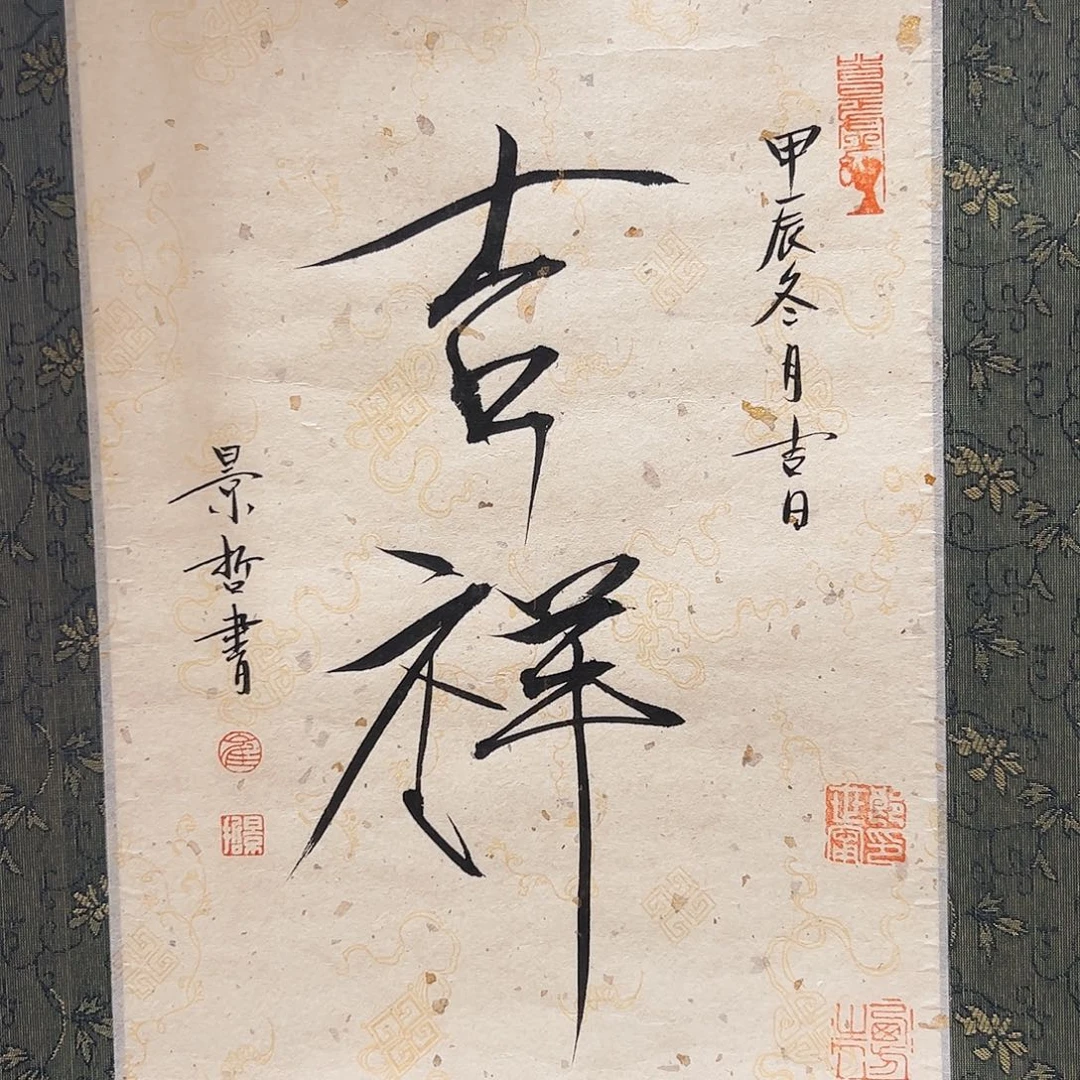 甲辰冬月吉日
吉祥
景哲書